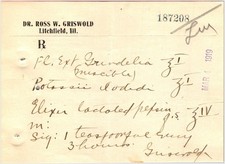 187208
DR. ROSS W. GRISWOLD
Litchfield, Ill.
R
Fl. Ext Grindelia ℥ I
miscible
Potassii Iodidi ʒ I
Elixir Lactated pepsin q.s ℥ IV
m:
Sig: 1 Teaspoonful every
3 hours
Griswold